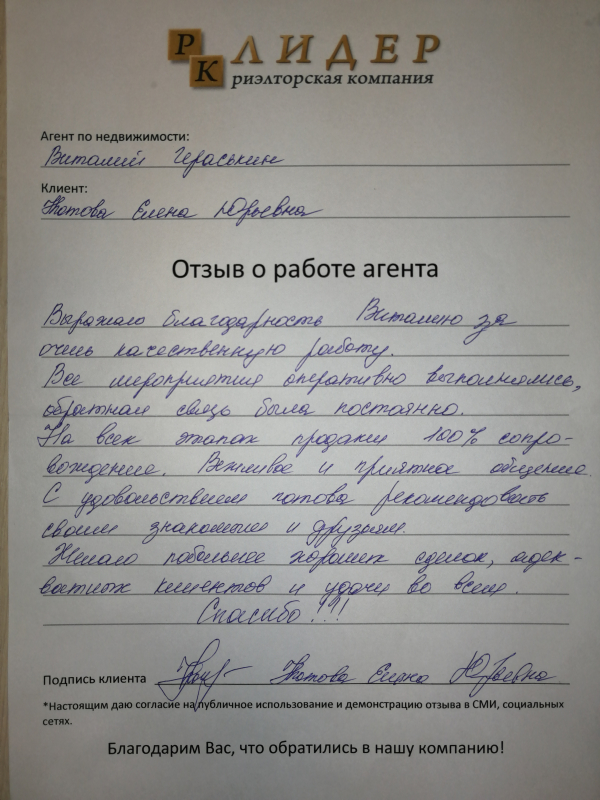 РК ЛИДЕР
риэлторская компания
Агент по недвижимости:
Виталий Гераськин
Клиент:
Котова Елена Юрьевна
Отзыв о работе агента
Выражаю благодарность Виталию за
очень качественную работу.
Все мероприятия оперативно выполнялись,
обратная связь была постоянно.
На всех этапах продажи 100% сопро-
вождение. Вежливое и приятное общение.
С удовольствием готова рекомендовать
своим знакомым и друзьям.
Желаю побольше хороших сделок, адек-
ватных клиентов и удачи во всем.
Спасибо!!!
Подпись клиента Котова Елена Юрьевна
*Настоящим даю согласие на публичное использование и демонстрацию отзыва в СМИ, социальных
сетях.
Благодарим Вас, что обратились в нашу компанию!